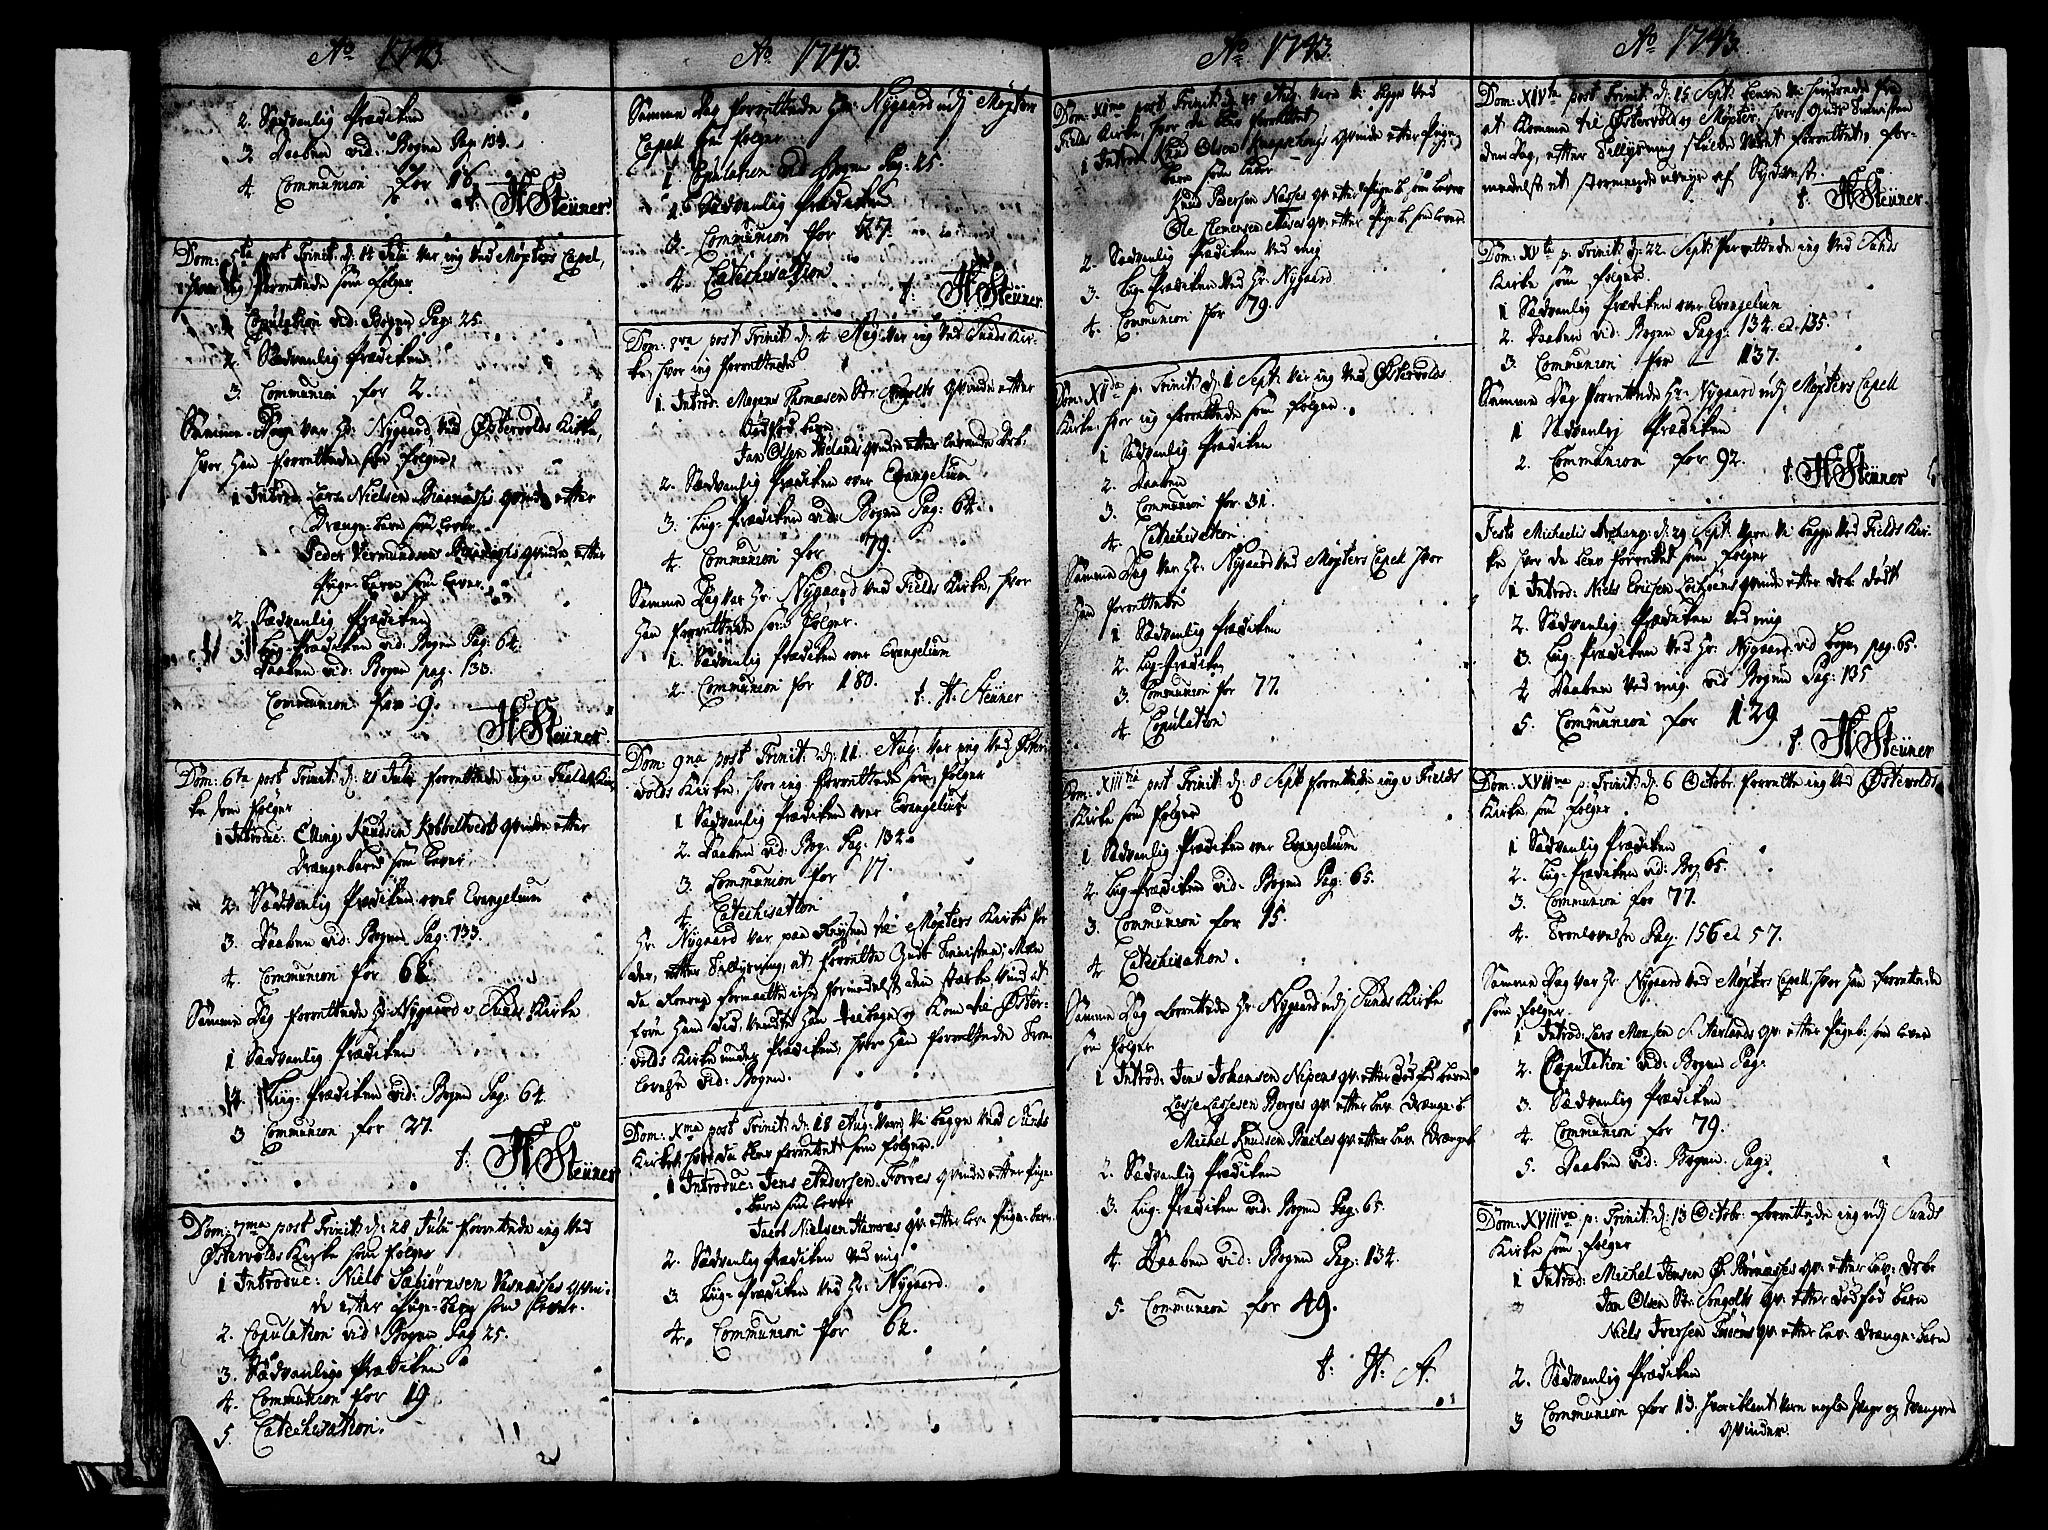 Ao 1743.
2. Sædvanlig Prædiken
3 Daaben vid: Bogen Pag: 133.
4. Communion for 16.
t. H Steüner.
Dom: 5ta post Trinit: d: 14 Julii var ieg ved Møxters Capel,
hvor ieg forrettede som følger
1 Copulation vid: Bogen Pag: 25.
2. Sædvanlig Prædiken
3 Communion for 2.
Samme Dag var Hr: Nygaard ved Østervolds Kirke,
hvor han forrettede som følger
1 Introd: Lars Nielsen qvinde etter
Drænge-barn som lever
Peder Vermundsens qvinde etter
Pige-barn som lever
2. Sædvanlig Prædiken
3 Liig-Prædiken vid: Bogen Pag: 64.
Daaben vid: Bogen pag: 133.
Communion for 9.
H Steüner
Dom: 6ta post Trinit: d: 21 Julii forrettede ieg i Fields Kir-
ke som følger
1 Introduc: Elling Knudsen Kobbeltvedt qvinde etter
Drængebarn som lever
2. Sædvanlig Prædiken over Evangelium
3. Daaben vid: Bogen Pag: 133.
4. Communion for 62.
Samme Dag forrettede Hr: Nygaard i Sunds Kirke
1 Sædvanlig Prædiken
2. Liig-Prædiken vid: Bogen Pag: 64.
3 Communion for 27.
t: H Steüner
Dom: 7ma post Trinit: d: 28 Julii forrettede ieg ved
Østervolds Kirke som følger
1 Introduc: Niels Sæbiørnsen qvin-
de etter Pige-barn som lever.
2. Copulation vid Bogen Pag 25.
3. Sædvanlig Prædiken
4. Communion for 19
5. Catechisation.
Ao 1743.
Samme Dag forrettede Hr: Nygaard udj Møxters
Capell som følger
1. Copulation vid Bogen Pag: 25
2. Sædvanlig Prædiken
3. Communion for 27.
4. Catechisation
t: H Steüner.
Dom: 8va post Trinit: d: 4 Aug: var ieg ved Sunds Kir-
ke, hvor ieg forrettede
1. Introd: Mogens Thomæsen Str: qvinde etter
Dødfød barn
Jan Olsen qvinde etter levende Drb:
2. Sædvanlig Prædiken over Evangelium
3. Liig-Prædiken vid: Bogen Pag: 64.
4. Communion for 79.
Samme Dag var Hr: Nygaard ved Fields Kirke, hvor
han forrettede som følger.
1. Sædvanlig Prædiken over Evangelium
2. Communion for 180.
t: H. Steüner
Dom 9na post Trinit: d: 11. Aug: var ieg ved Øster-
volds Kirke, hvor ieg forrettede som følger
1 Sædvanlig Prædiken over Evangelium
2. Daaben vid: Bog: Pag: 134.
3. Communion for 17.
4. Catechisation
Hr: Nygaard var paa Reysen til Møxters Kirke for
der, etter Tillysning, at forrette Guds Tienisten; Men
da formedelst den stærke vind et
han tilbage og kom til Øster-
volds Kirke under Prædiken, hvor han forrettede Tron-
lovelse vid: Bogen.
Dom: Xma post Trinit: d: 18 Aug: vare vi begge ved Sunds
Kirke, hvor da blev forrettet som følger.
1 Introduc: Jens Andersen Førres qvinde etter Pige-
barn som lever
Jacob Nielsen Hamres qv: etter lev: Pige-barn.
2. Sædvanlig Prædiken ved mig
3. Liig-Prædiken ved Hr: Nygaard.
4. Communion for 62.
Ao 1743.
Dom: XIma post Trinit: d: 25 Aug: vare vi begge ved
Fields Kirke, hvor da blev forrettet
1 Introd: Knud Olsen qvinde etter Pige-
barn som lever
Knud Pedersen qv: etter Pige-b: som lever
Ole Clemensen qv: etter Pige-b: som lever
2. Sædvanlig Prædiken ved mig
3. Liig-Prædiken ved Hr: Nygaard
4. Communion for 79.
p: Trinit: d: 1 Sept: var ieg ved Østervolds
Kirke, hvor ieg forrettede som følger.
1 Sædvanlig Prædiken
2. Daaben
3. Communion for 31.
4. Catechisation.
Samme Dag var Hr: Nygaard ved Møxters Capell hvor
han forrettede
1 Sædvanlig Prædiken
2. Liig-Prædiken
3. Communion for 77.
4. Copulation
Dom: XIIItia post Trinit: d: 8 Sept forrettede ieg i Fields
Kirke som følger
1 Sædvanlig Prædiken over Evangelium
2. Liig-Prædiken vid: Bogen Pag: 65.
3. Communion for 95.
4 Catechisation.
Samme Dag forrettede Hr: Nygaard udj Sunds Kirke
som følger
1 Introd: Jens Johansen Nipens qv: etter Dødfød barn
Lasse Lassesen Berges qv: etter lev: Drænge-b:
Michel Knudsen Backes qv: etter lev: Drængeb
2. Sædvanlig Prædiken
3. Liig-Prædiken vid: Bogen Pag: 65.
4. Daaben vid: Bogen Pag: 134.
5. Communion for 49.
t: H: S.
Ao 1743.
Dom: XIVta post Trinit: d: 15 Sept: bleve vi hindrede fra
at komme til Østervold og Møxter, hvor Guds Tienisten
den Dag, etter Tillysning skulde været forrettet, for-
medelst et stormende af Sydvest.
t. H Steüner
Dom: XVta p: Trinit: d: 22 Sept: forrettede ieg ved Sunds
Kirke som følger.
1 Sædvanlig Prædiken over Evangelium
2. Daaben vid: Bogen Pagg: 134. et 135.
3. Communion for 137.
Samme Dag forrettede Hr: Nygaard udj Møxters Capell
1 Sædvanlig Prædiken
2. Communion for 92.
t. H Steüner
Festo Michaelis Archang: d: 29 Sept: vare vi begge ved Fields Kir-
ke hvor da blev forrettet som følger
1 Introd: Niels Ericsen qvinde etter Drb: Dødt
2. Sædvanlig Prædiken ved mig
3. Liig-Prædiken ved Hr: Nygaard vid bogen pag: 65.
4 Daaben ved mig. vid Bogen Pag: 135
5. Communion for 129
t: H Steüner
Dom: XVIIma p: Trinit: d: 6 Octobr: forrettede ieg ved Østervolds
Kirke som følger
1 Sædvanlig Prædiken
2. Liig-Prædiken vid: Bog 65.
3. Communion for 77.
4. Tronlovelse Pag: 156 et 57.
Samme Dag var Hr: Nygaard ved Møxters Capell, hvor han forrettede
som følger.
1 Introd: Lars Monsen qv: etter Pigeb: som lever
2. Copulation vid: Bogen Pag:
3. Sædvanlig Prædiken
4. Communion for 79.
5. Daaben vid: Bogen Pag:
Dom: XVIIIva p: Trinit: d: 13 Octobr: forrettede ieg udj Sunds
Kirke som følger
1 Introd: Michel Jensen qv: etter lev: Drb:
Jan Olsen Str: qv: etter Dødfød barn
Niels Iversen qv: etter lev: Drænge-barn
2. Sædvanlig Prædiken
3 Communion for 13. hvoriblant vare nogle svage og svangre
qvinder.